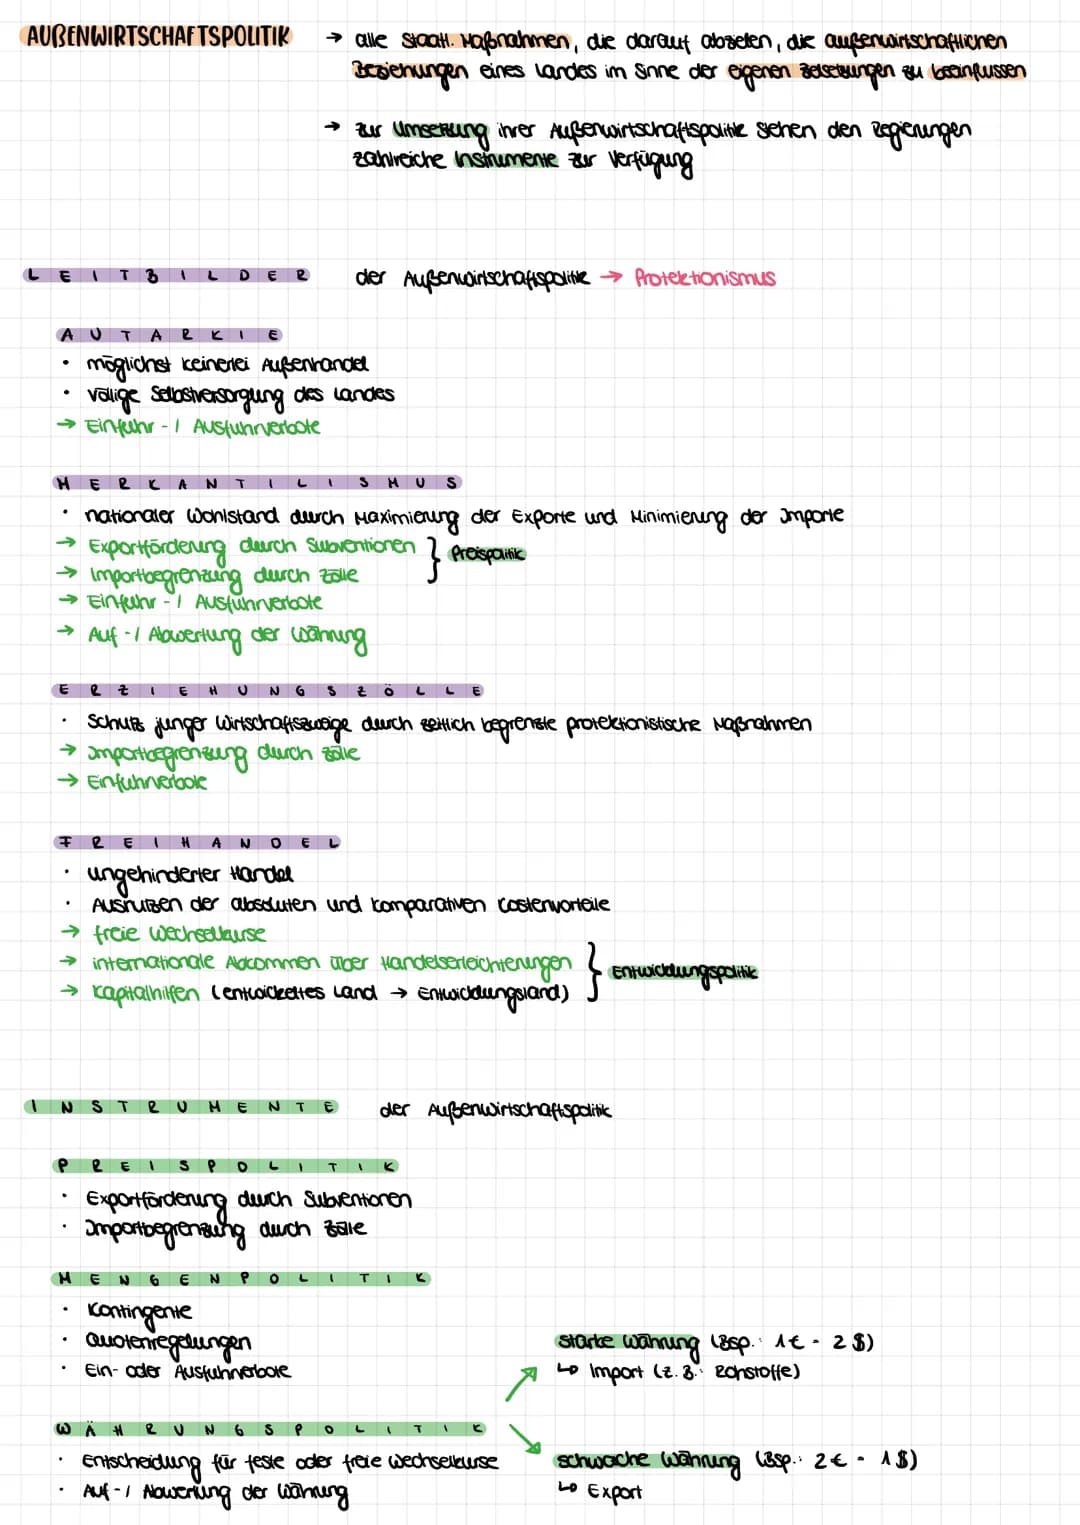 AUßENWIRTSCHAFTSPOLITIK → alle staatl. Maßnahmen, die darauf abzielen, die außenwirtschaftlichen
Beziehungen eines Landes im Sinne der eigenen Zielsetzungen zu beeinflussen
→ zur Umsetzung ihrer Außenwirtschaftspolitik stehen den Regierungen
zahlreiche Instrumente zur Verfügung
LEITBILDER der Außenwirtschaftspolitik → Protektionismus
AUTARKIE
• möglichst keinerlei Außenhandel
• völlige Selbstversorgung des Landes
→ Einfuhr-/ Ausfuhrverbote
MERKANTILISMUS
• nationaler Wohlstand durch Maximierung der Exporte und Minimierung der Importe
→ Exportförderung durch Subventionen } Preispolitik
→ Importbegrenzung durch Zölle
→ Einfuhr-/ Ausfuhrverbote
→ Auf-/ Abwertung der Währung
ERZIEHUNGSZÖLLE
• Schutz junger Wirtschaftszweige durch zeitlich begrenzte protektionistische Maßnahmen
→ Importbegrenzung durch Zölle
→ Einfuhrverbote
FREIHANDEL
• ungehinderter Handel
• Ausnutzen der absoluten und komparativen Kostenvorteile
→ freie Wechselkurse
→ internationale Abkommen über Handelserleichterungen } Entwicklungspolitik
→ Kapitalhilfen (entwickeltes Land → Entwicklungsland)
INSTRUMENTE der Außenwirtschaftspolitik
PREISPOLITIK
• Exportförderung durch Subventionen
• Importbegrenzung durch Zölle
MENGENPOLITIK
• Kontingente
• Quotenregelungen
• Ein- oder Ausfuhrverbote
starke Währung (Bsp.: 1€ - 2$)
↳ Import (z.B.: Rohstoffe)
WÄHRUNGSPOLITIK
• Entscheidung für feste oder freie Wechselkurse
• Auf-/ Abwertung der Währung
schwache Währung (Bsp.: 2€ - 1$)
↳ Export